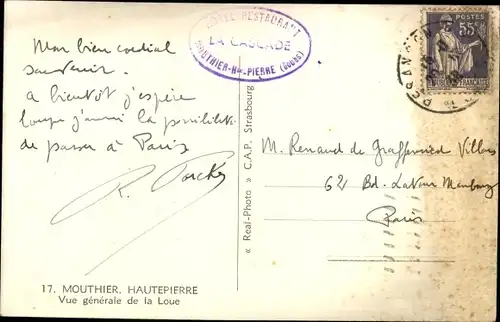 Mon bien cordial
souvenir.
a bientôt j'espère
lorsque j'aurai la possibilité
de passer à Paris
HOTEL RESTAURANT
LA CASCADE
MOUTHIER-Hte-PIERRE (DOUBS)
POSTES
55c
M. Renaud de Graffenried Villars
62 Bd. Latour Maubourg
Paris
« Real-Photo » C.A.P. Strasbourg
17. MOUTHIER, HAUTEPIERRE
Vue générale de la Loue